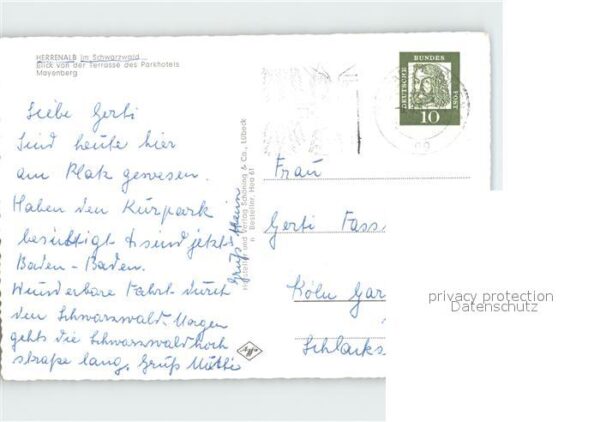 HERRENALB im Schwarzwald
Blick von der Terrasse des Parkhotels
Mayenberg
Liebe Gerti
Sind heute hier
am Platz gewesen.
Haben den Kurpark
besichtigt & sind jetzt i
Baden-Baden.
Wunderbare Fahrt durch
den Schwarzwald. Morgen
gehts die Schwarzwaldhoch
straße lang. Gruß Mutti
Gruß
Hersteller und Verlag Schöning & Co., Lübeck
Besteller, Hea 61
DEUTSCHE BUNDES POST
10
Frau
Gerti Fass
Köln Gar
Schlacks
privacy protection
Datenschutz